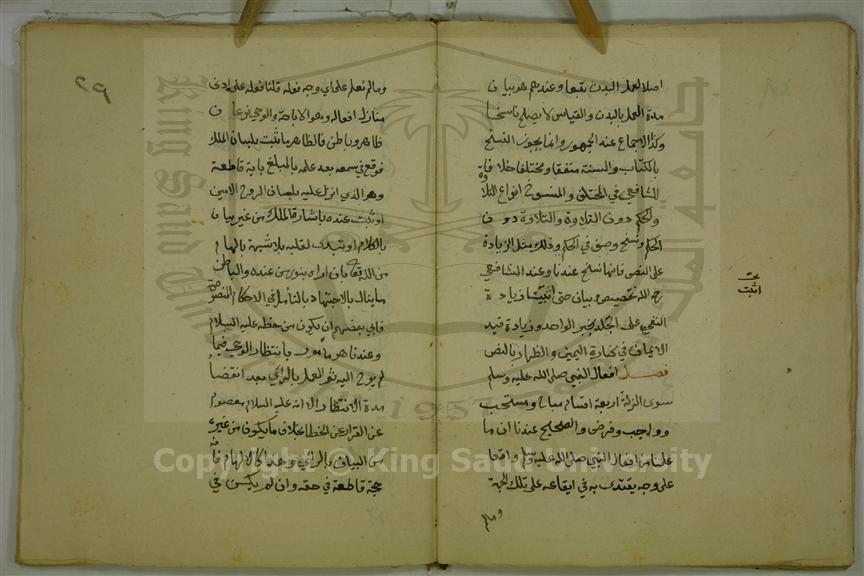 اصلا لعمل البدن تبعا وعندهم هو بيان
مدة العمل بالبدن والقياس لا يصلح ناسخا
وكذا الاجماع عند الجمهور وانما يجوز النسخ
بالكتاب والسنة متفقا ومختلفا خلافا
للشافعي في المختلف والمنسوخ انواع التلاوة
والحكم والحكم دون التلاوة والتلاوة دون
الحكم ونسخ وصف في الحكم وذلك مثل الزيادة
على النص فانها نسخ عندنا وعند الشافعي
رحمه الله تخصيص وبيان حتى اثبت زيادة
النفي على الجلد بخبر الواحد وزيادة قيد
الايمان في كفارة اليمين والظهار بالنص
فصل افعال النبي صلى الله عليه وسلم
سوى الزلة اربعة اقسام مباح ومستحب
وواجب وفرض والصحيح عندنا ان ما
علمنا من افعال النبي صلى الله عليه وسلم واقعا
على وجه يقتدى به في ايقاعه على تلك الجهة
وما لم
اثبت
٢٩
وما لم نعلم على اي وجه فعله قلنا فعله على ادنى
منازل افعاله وهو الاباحة والوحي نوعان
ظاهر وباطن فالظاهر ما ثبت بلسان الملك
فوقع في سمعه بعد علمه بالمبلغ باية قاطعة
وهو الذي انزل عليه بلسان الروح الامين
او ثبت عنده باشارة الملك من غير بيان
بالكلام او تبدى لقلبه بلا شبهة بالهام
من الله تعالى بان اراه بنور من عنده والباطن
ما ينال بالاجتهاد بالتأمل في الاحكام المنصوصة
فابى بعضهم ان يكون من حظه عليه السلام
وعندنا هو مأمور بانتظار الوحي فيما
لم يوح اليه ثم العمل بالراي بعد انقضا
مدة الانتظار الا انه عليه السلام معصوم
عن القرار عن الخطا بخلاف ما يكون من غيره
من البيان بالراي وهذا كالالهام فانه
حجة قاطعة في حقه وان لم يكن في
Copyright © King Saud University
King Saud University
1957
جامعة الملك سعود